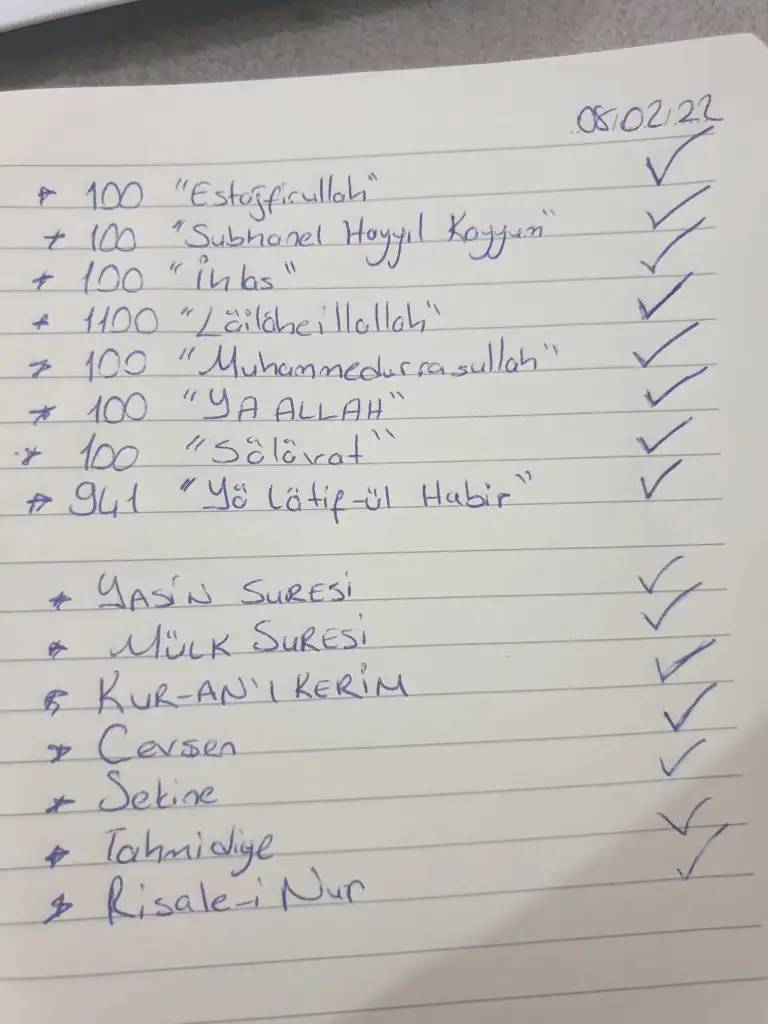 08.02.22
100 "Estağfirullah"
100 "Subhanel Hayyıl Kayyum"
100 "İhlas"
1100 "Lâilâheillallah"
100 "Muhammedurrasullah"
100 "YA ALLAH"
100 "Sâlâvat"
941 "Yâ Lâtif-ül Habir"
YASİN SURESİ
MÜLK SURESİ
KUR-AN'I KERİM
Cevsen
Sekine
Tahmidiye
Risale-i Nur